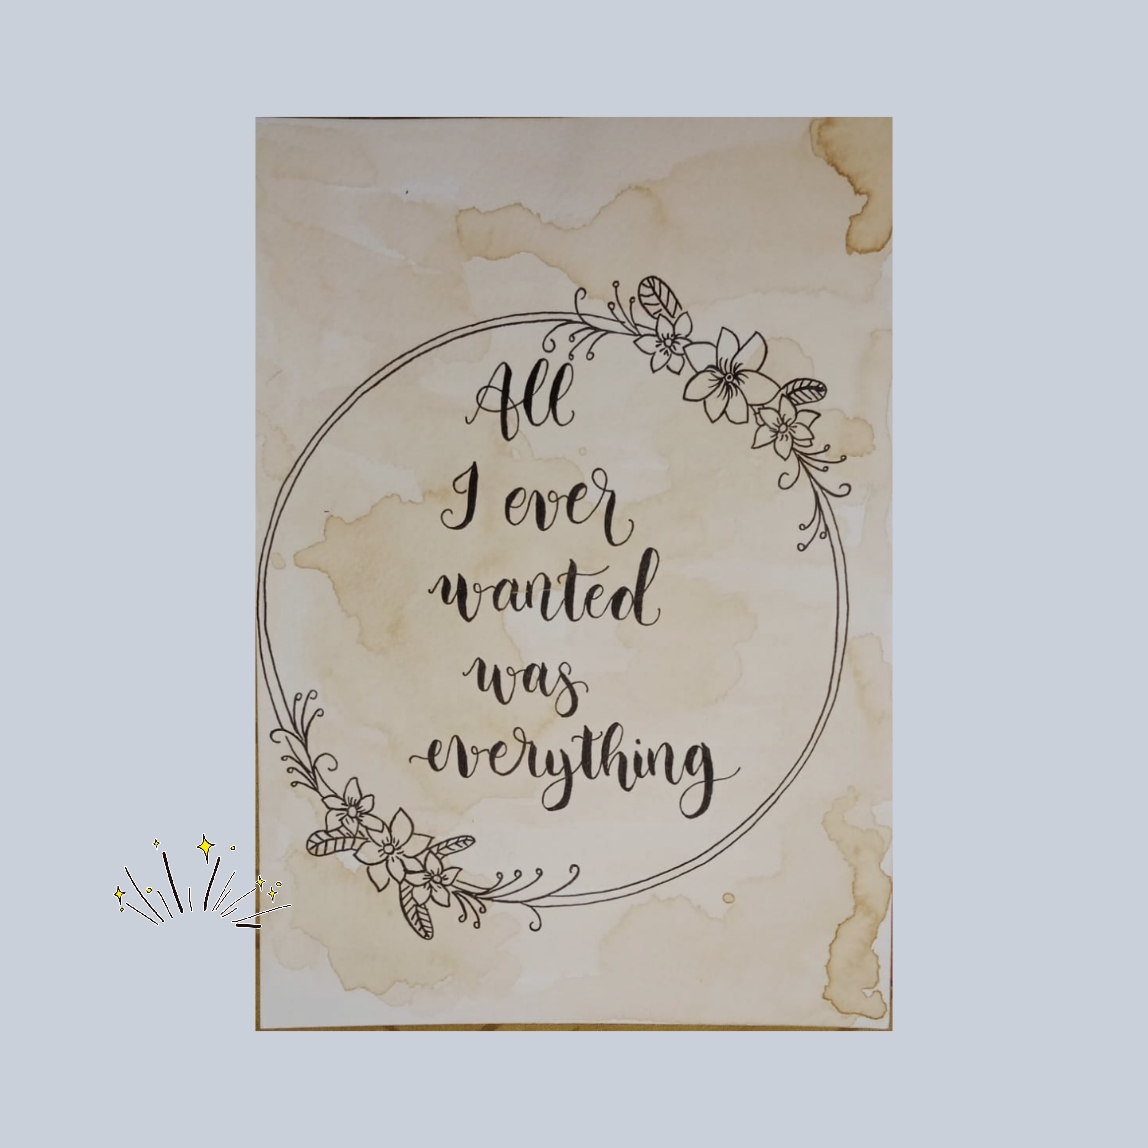 All
I ever
wanted
was
everything